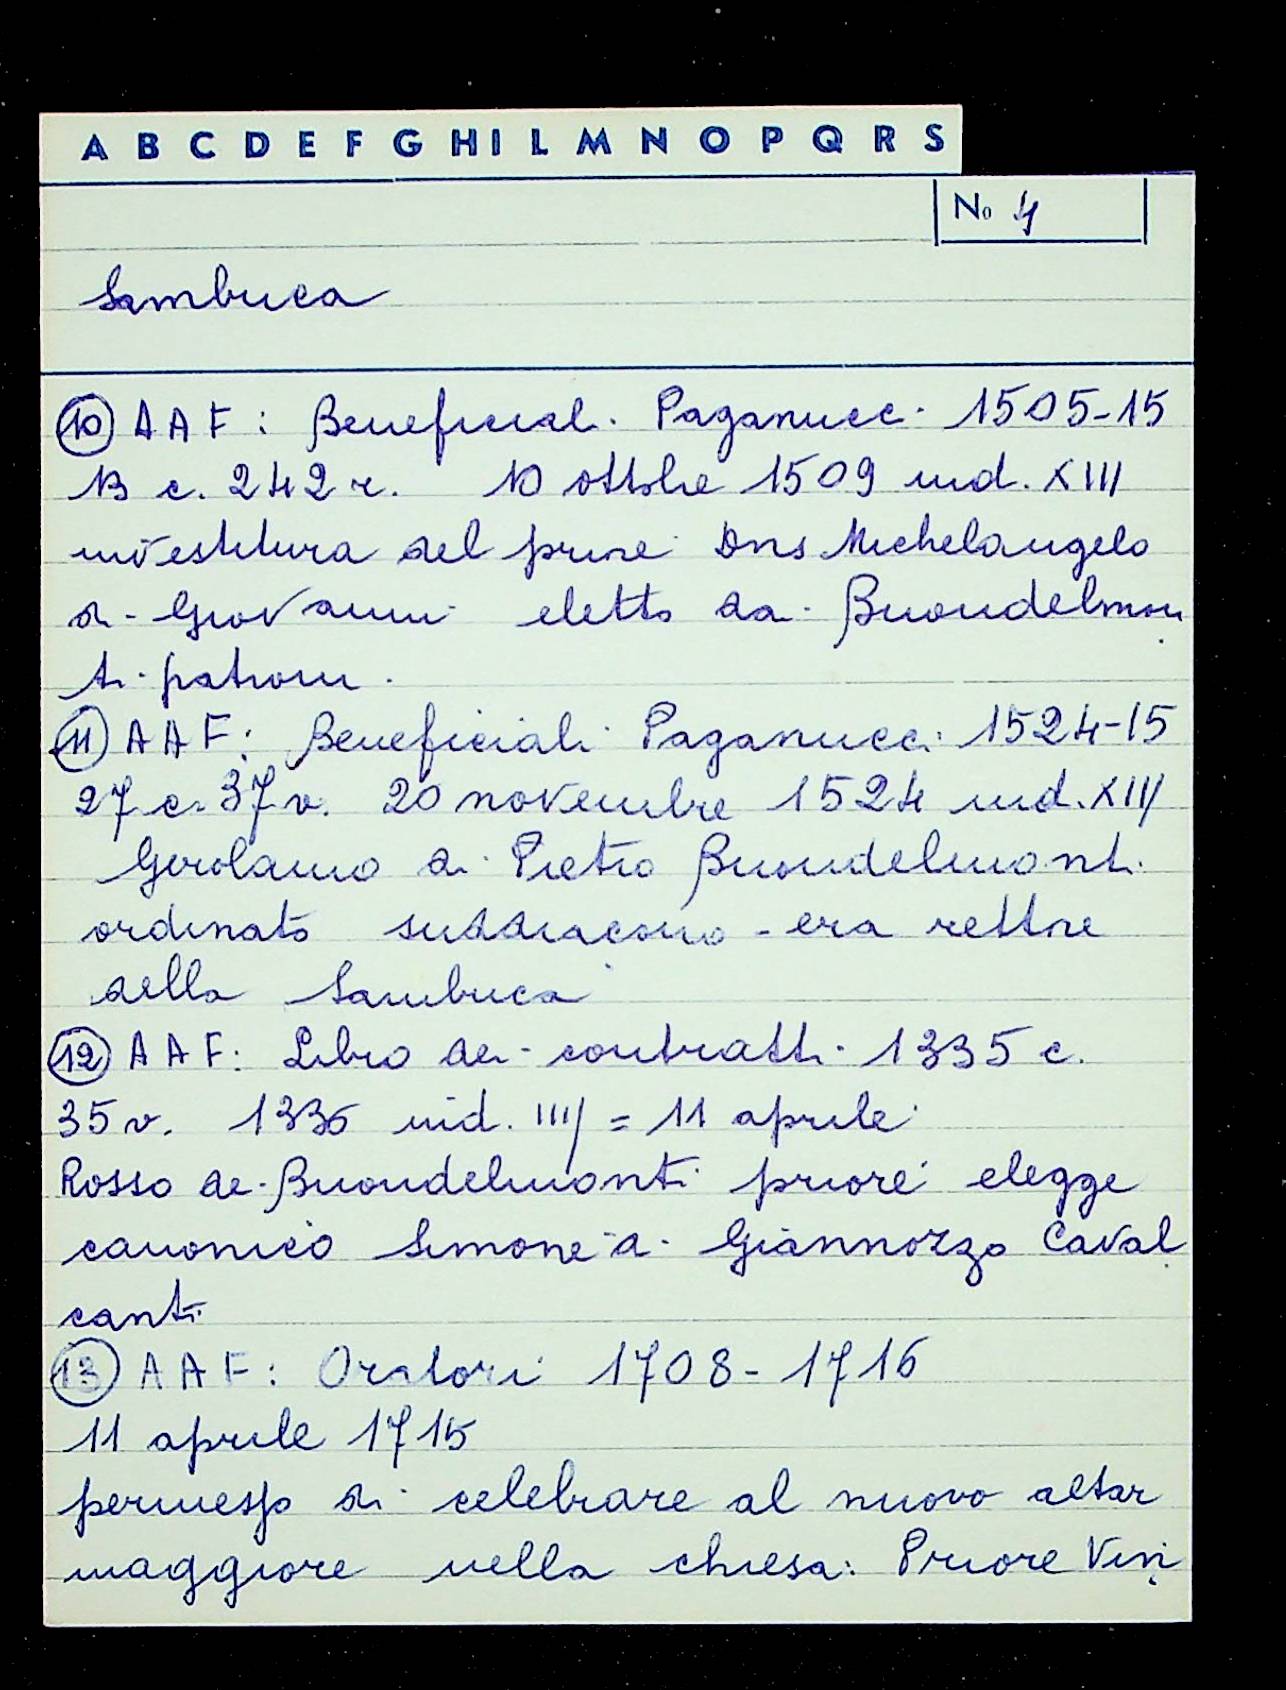 A B C D E F G H I L M N O P Q R S
No 4
Sambuca
10 AAF: Beneficiali Paganucci 1505-15
13 c. 242 r. 10 ottobre 1509 ind. XIII
investitura del priore Dns Michelangelo
di Giovanni eletto da Buondelmon
ti patroni.
11 AAF: Beneficiali Paganucci 1524-15
27 c. 37 v. 20 novembre 1524 ind. XIII
Gerolamo di Pietro Buondelmonti
ordinato suddiacono - era rettore
della Sambuca
12 AAF: Libro dei contratti 1335 c.
35 v. 1336 ind. IIII = 11 aprile
Rosso de Buondelmonti priore elegge
canonico Simone di Giannozzo Caval
canti
13 AAF: Oratori 1708-1716
11 aprile 1715
permesso di celebrare al nuovo altar
maggiore nella chiesa: Priore Vin